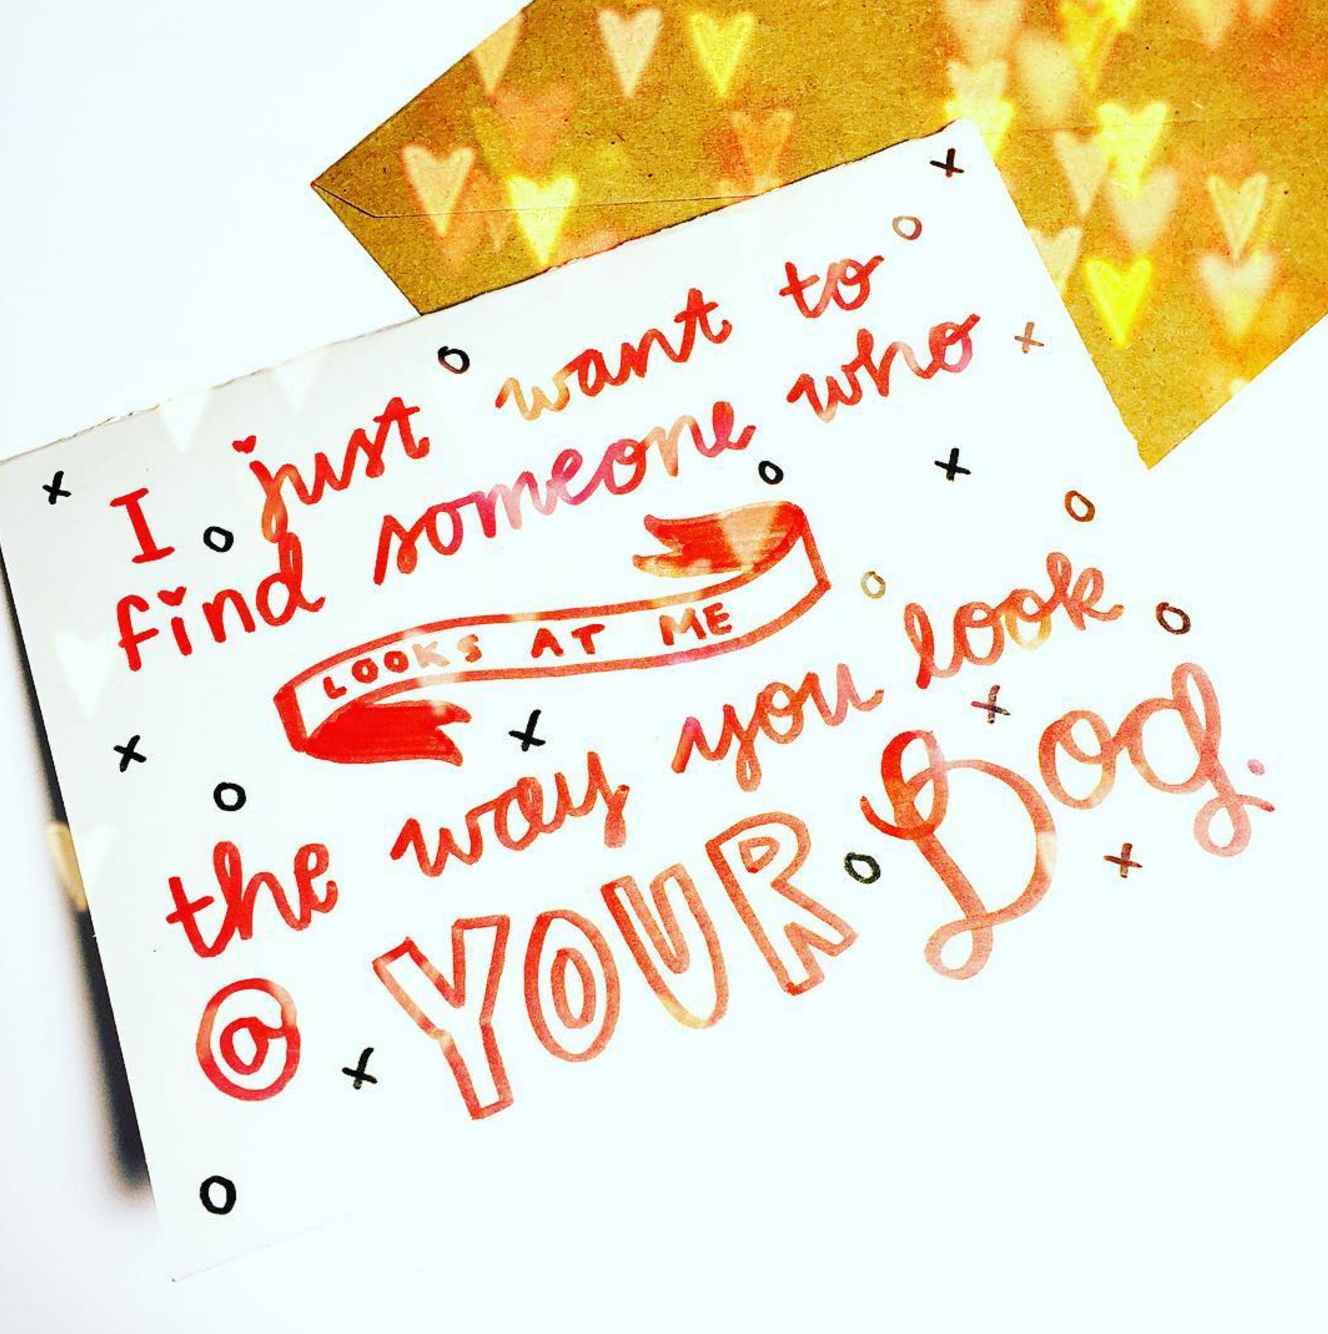 I just want to
find someone who
LOOKS AT ME
the way you look
@ YOUR Dog.